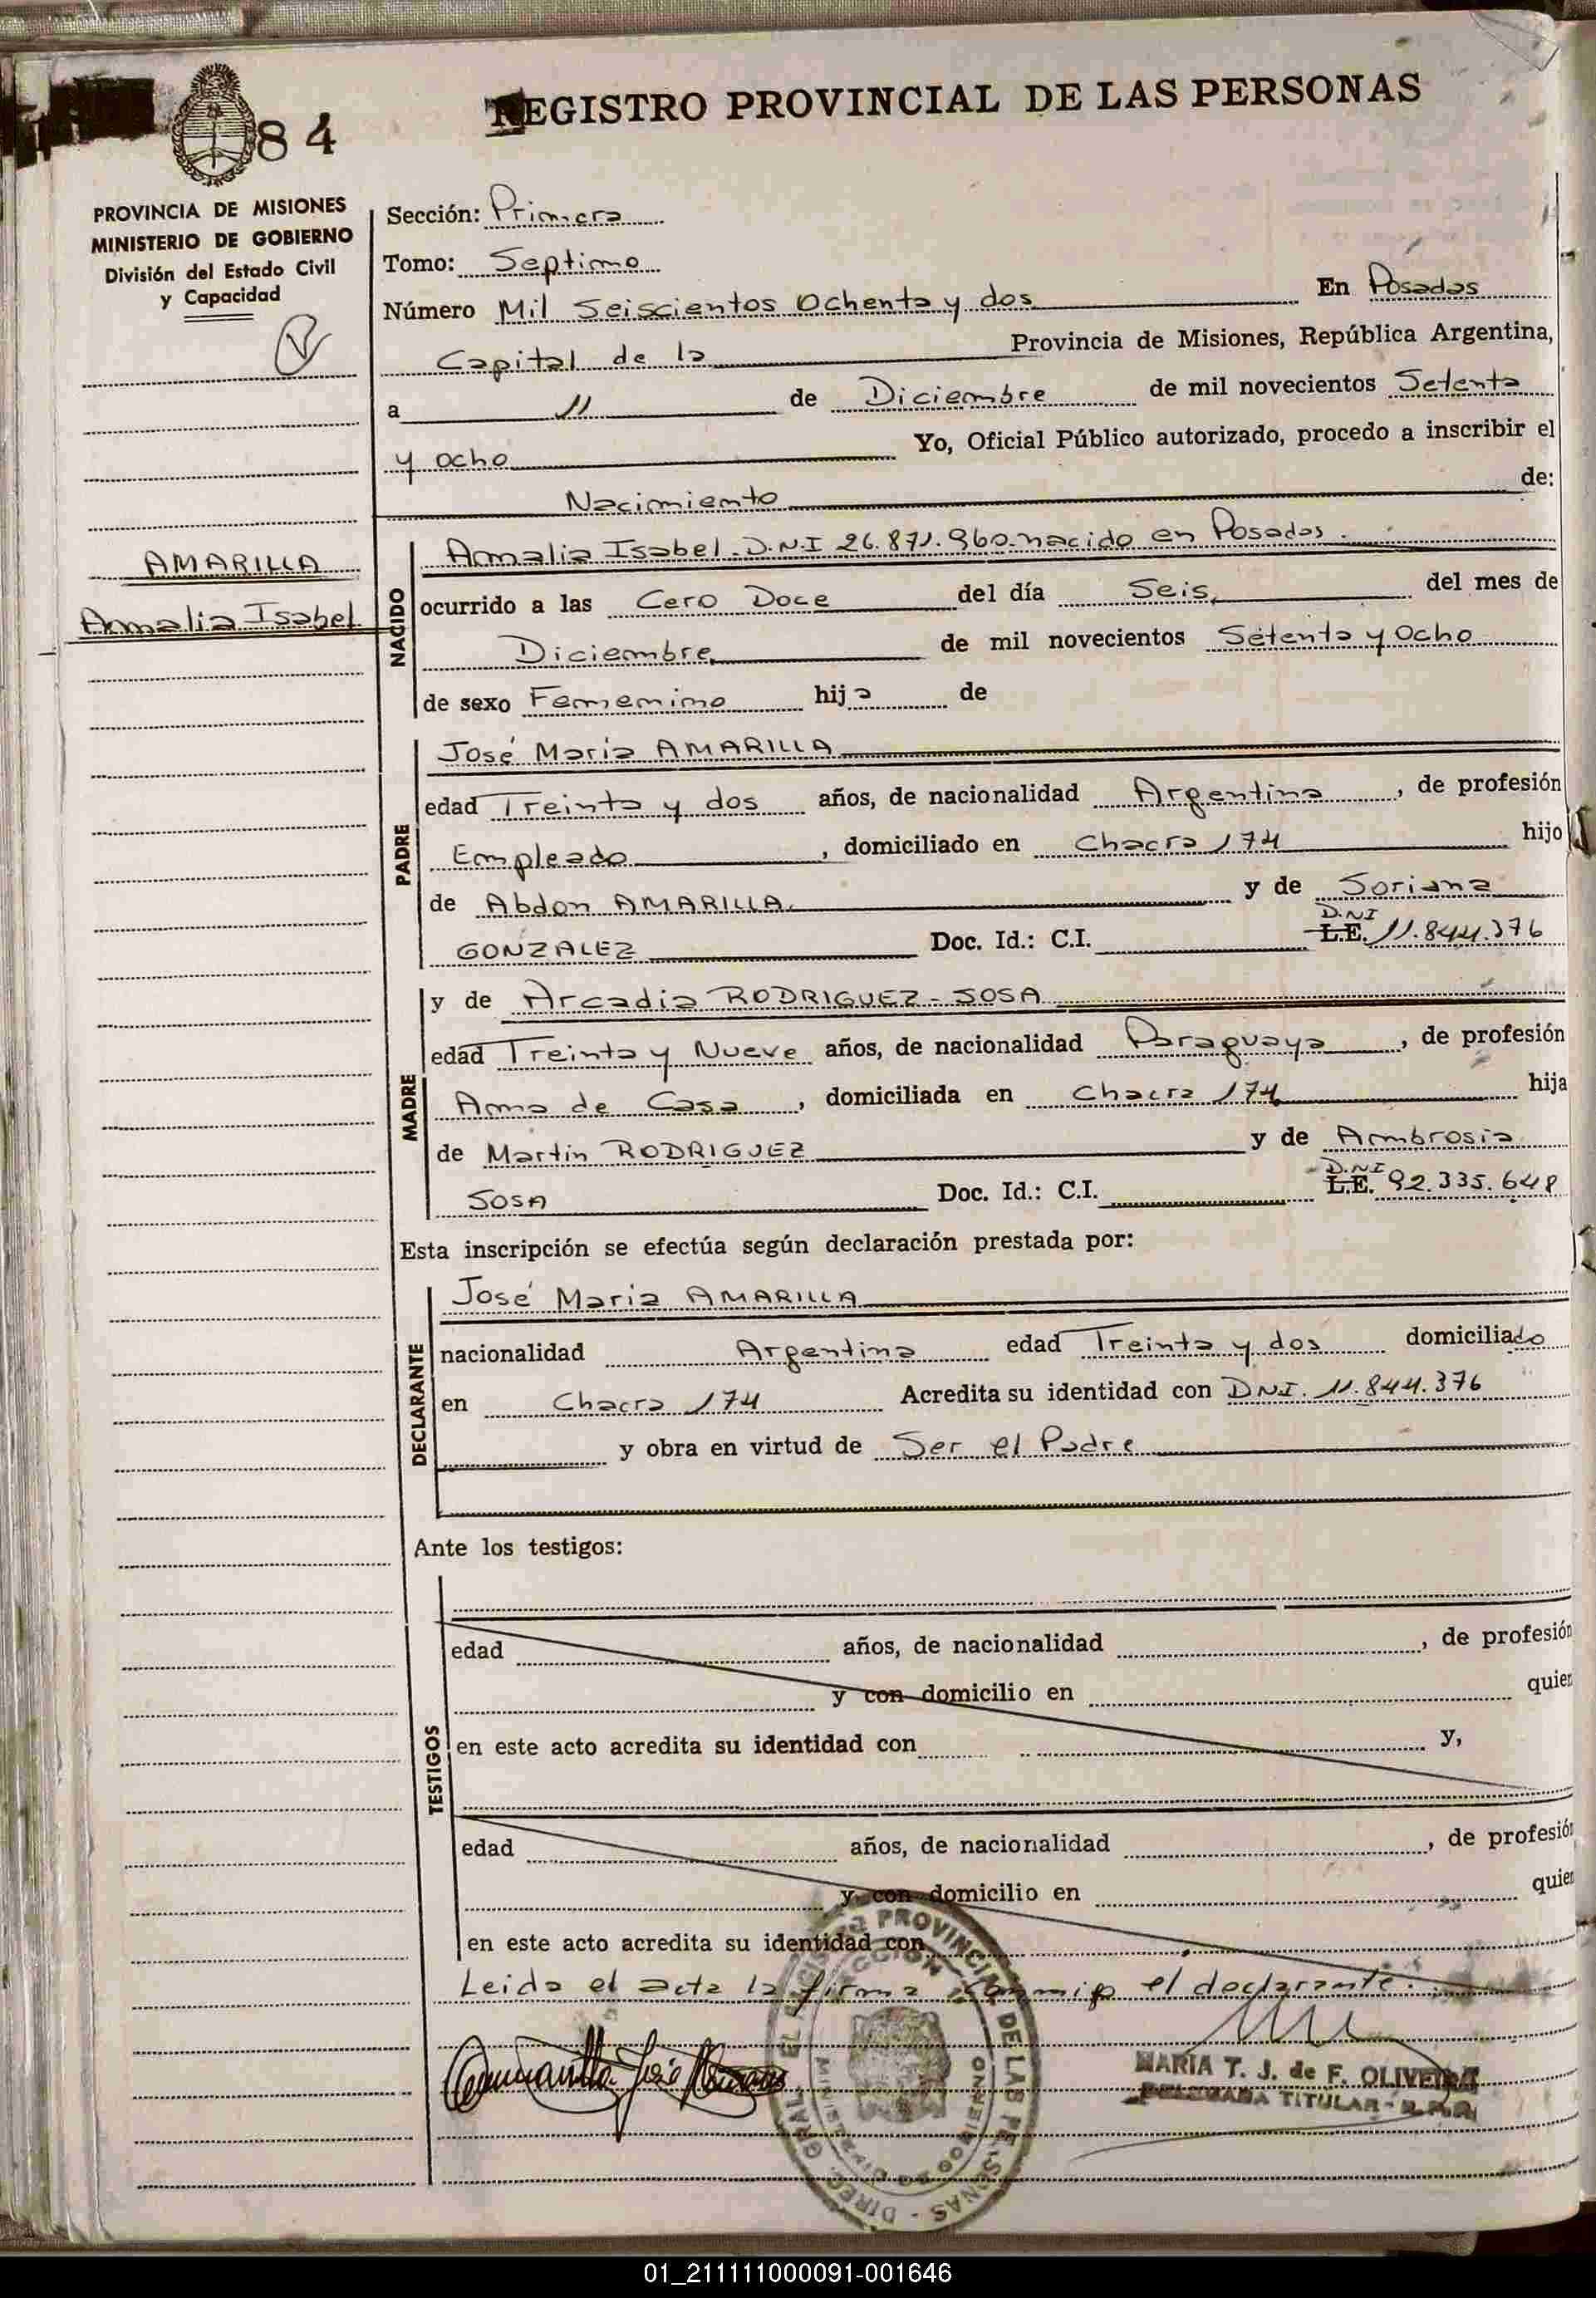 84
REGISTRO PROVINCIAL DE LAS PERSONAS
PROVINCIA DE MISIONES
MINISTERIO DE GOBIERNO
División del Estado Civil
y Capacidad
AMARILLA
Amalia Isabel
Sección: Primera
Tomo: Septimo
Número Mil Seiscientos Ochenta y dos En Posadas
Capital de la Provincia de Misiones, República Argentina,
a 11 de Diciembre de mil novecientos Setenta
y ocho Yo, Oficial Público autorizado, procedo a inscribir el
Nacimiento de:
NACIDO
Amalia Isabel. D.N.I 26.871.960. nacido en Posadas.
ocurrido a las Cero Doce del día Seis, del mes de
Diciembre, de mil novecientos Setenta y Ocho
de sexo Femenino hija de
PADRE
José Maria AMARILLA
edad Treinta y dos años, de nacionalidad Argentina, de profesión
Empleado, domiciliado en Chacra 174 hijo
de Abdon AMARILLA. y de Soriana
GONZALEZ Doc. Id.: C.I. L.E. D.NI 11.844.376
MADRE
y de Arcadia RODRIGUEZ - SOSA
edad Treinta y Nueve años, de nacionalidad Paraguaya, de profesión
Ama de Casa, domiciliada en Chacra 174 hija
de Martin RODRIGUEZ y de Ambrosia
SOSA Doc. Id.: C.I. L.E. D.NI 92.335.648
Esta inscripción se efectúa según declaración prestada por:
DECLARANTE
José Maria AMARILLA
nacionalidad Argentina edad Treinta y dos domiciliado
en Chacra 174 Acredita su identidad con DNI. 11.844.376
y obra en virtud de Ser el Padre
Ante los testigos:
TESTIGOS
edad años, de nacionalidad , de profesión
y con domicilio en quien
en este acto acredita su identidad con y,
edad años, de nacionalidad , de profesión
y con domicilio en quien
en este acto acredita su identidad con
Leida el acta la firma conmigo el declarante.
Amarilla José
MARIA T. J. de F. OLIVEIRA
DELEGADA TITULAR - R.P.P.
PROVINCIAL DE LAS PERSONAS - DIREC. GRAL.
01_211111000091-001646